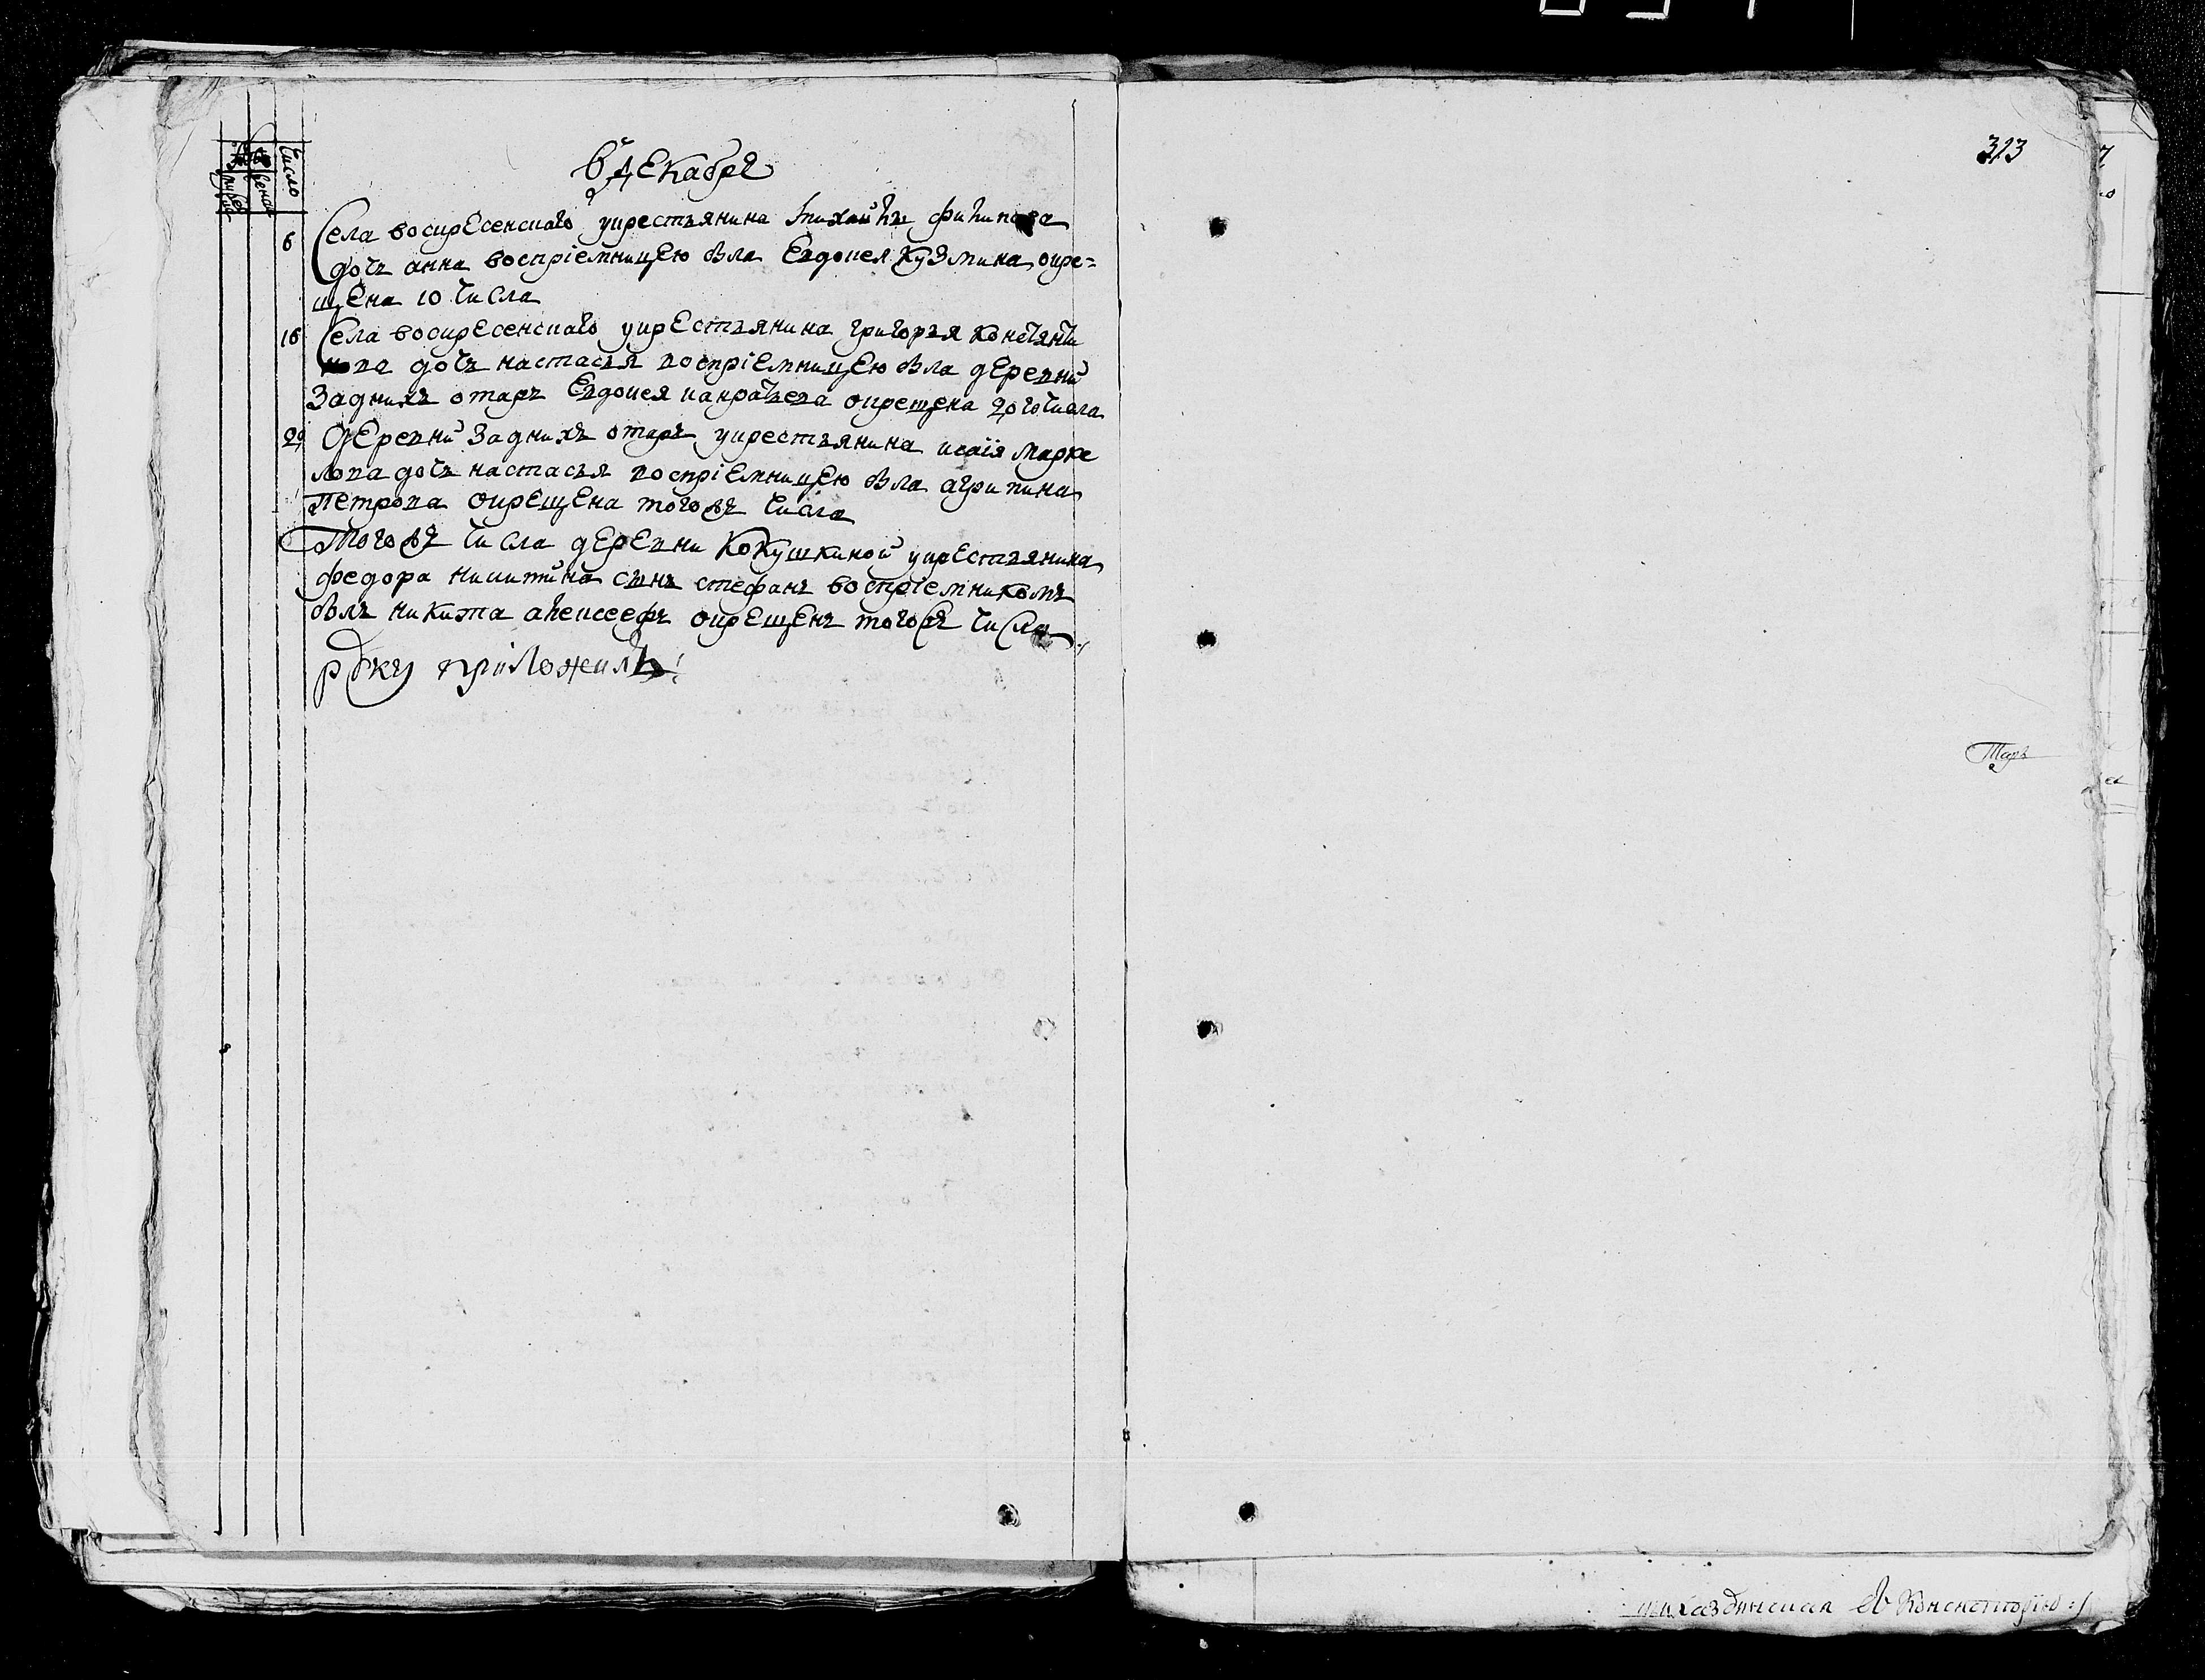 Число
в декабре
6 Села воскресенскаго у крестьянина михаилы филипова
дочь анна воспрiемницею была Евдокея Кузмина, окре=
щена 10 числа
16 Села воскресенскаго у крестьянина григорья констянти
нова дочь настасья воспрiемницею была деревни
Задних отар Евдокея панкратьева окрещена 20го числа
29 Деревни Задних отар у крестьянина исаiя марке
лова дочь настасья воспрiемницею была агрипина
Петрова окрещена тогож числа
Тогож числа деревни Кокушкиной у крестьянина
федора никитина сынъ стефанъ воспрiемникомъ
былъ никита алексеефъ окрещенъ тогож числа
руку приложилъ
313
Консисторiю